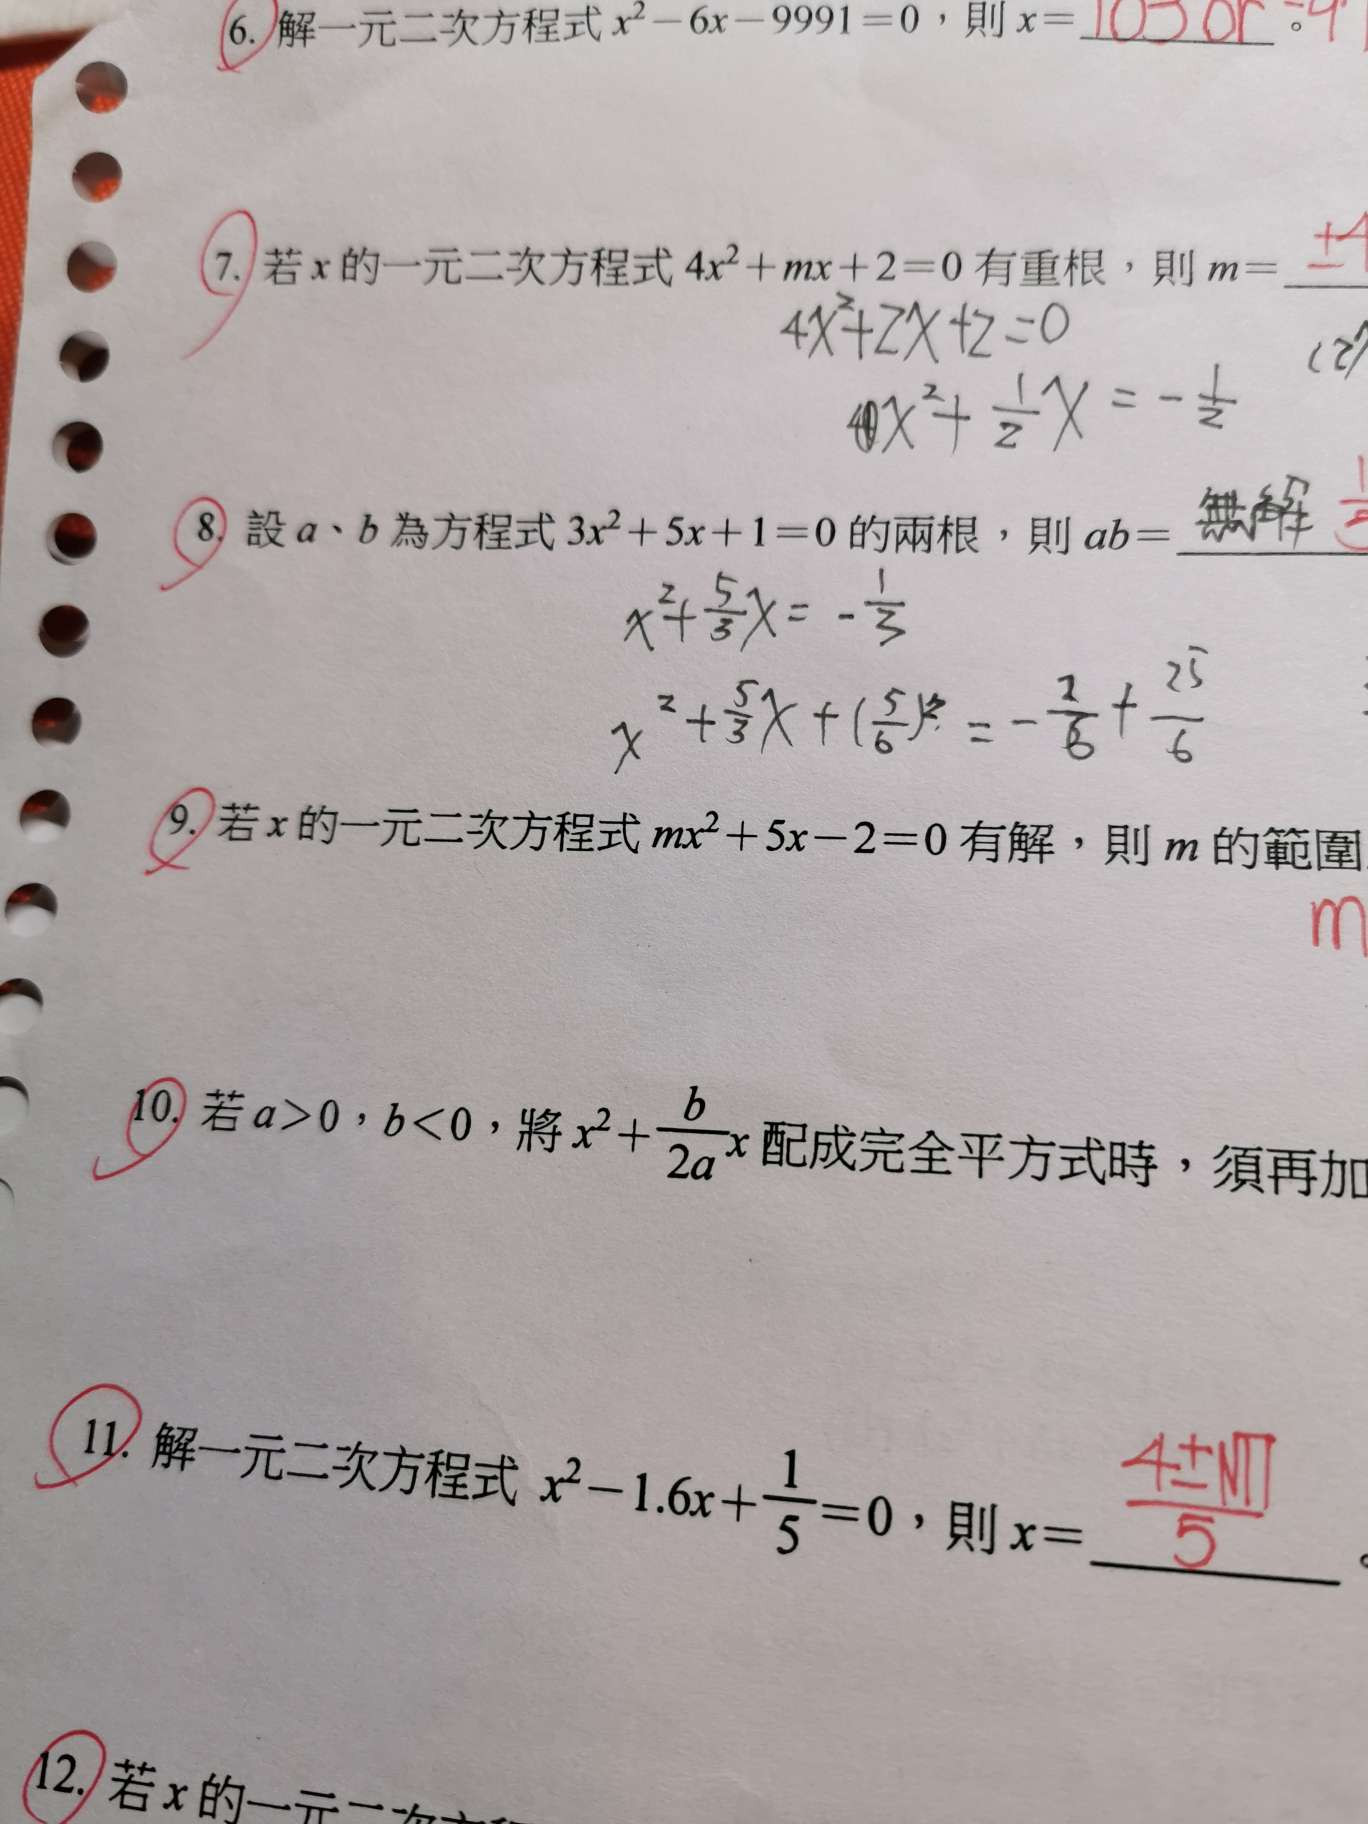 6. 解一元二次方程式 x²－6x－9991＝0，則 x＝ 103 or -9 。
7. 若 x 的一元二次方程式 4x²＋mx＋2＝0 有重根，則 m＝ ±4
4x²+2x+2=0
x²+1/2x = -1/2
8. 設 a、b 為方程式 3x²＋5x＋1＝0 的兩根，則 ab＝ 無解
x²+5/3x = -1/3
x²+5/3x+(5/6)² = - /6+25/6
9. 若 x 的一元二次方程式 mx²＋5x－2＝0 有解，則 m 的範圍
m
10. 若 a＞0，b＜0，將 x²＋b/2a x 配成完全平方式時，須再加
11. 解一元二次方程式 x²－1.6x＋1/5＝0，則 x＝ 4±√11/5 。
12. 若 x 的一元二次方程